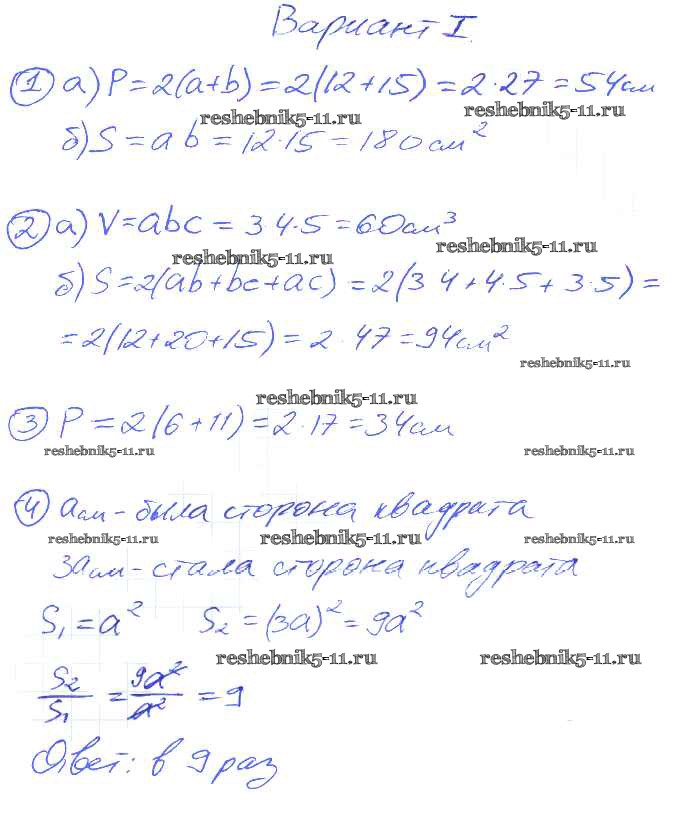 Вариант I.
1 а) P = 2(a+b) = 2(12+15) = 2·27 = 54см
reshebnik5-11.ru reshebnik5-11.ru
б) S = a b = 12·15 = 180см²
2 а) V = abc = 3·4·5 = 60см³
reshebnik5-11.ru reshebnik5-11.ru
б) S = 2(ab+bc+ac) = 2(3 4+4·5+3·5) =
= 2(12+20+15) = 2·47 = 94см²
reshebnik5-11.ru
reshebnik5-11.ru
3 P = 2(6+11) = 2·17 = 34см
reshebnik5-11.ru reshebnik5-11.ru
4 aсм - была сторона квадрата
reshebnik5-11.ru reshebnik5-11.ru reshebnik5-11.ru
3aсм - стала сторона квадрата
S₁ = a² S₂ = (3a)² = 9a²
reshebnik5-11.ru reshebnik5-11.ru
S₂/S₁ = 9a²/a² = 9
Ответ: в 9 раз